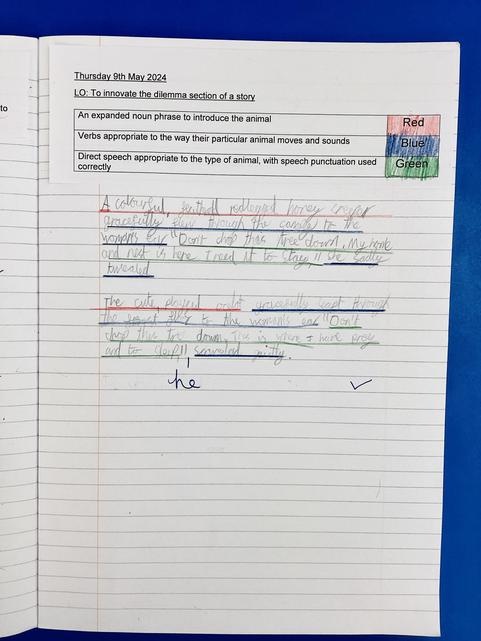 to
Thursday 9th May 2024
LO: To innovate the dilemma section of a story
An expanded noun phrase to introduce the animal
Red
Verbs appropriate to the way their particular animal moves and sounds
Blue
Direct speech appropriate to the type of animal, with speech punctuation used
correctly
Green
A colourful, redleged honey creper
gracefully flew through the canopy to the
womans ear "Don't chop this tree down. My home
and nest is here I need it to stay," she sadly
tweeted
The cute, playful gracefully leapt through
the to the womans ear "Don't
chop this tree down, This is where I have
and to sleep,"
he